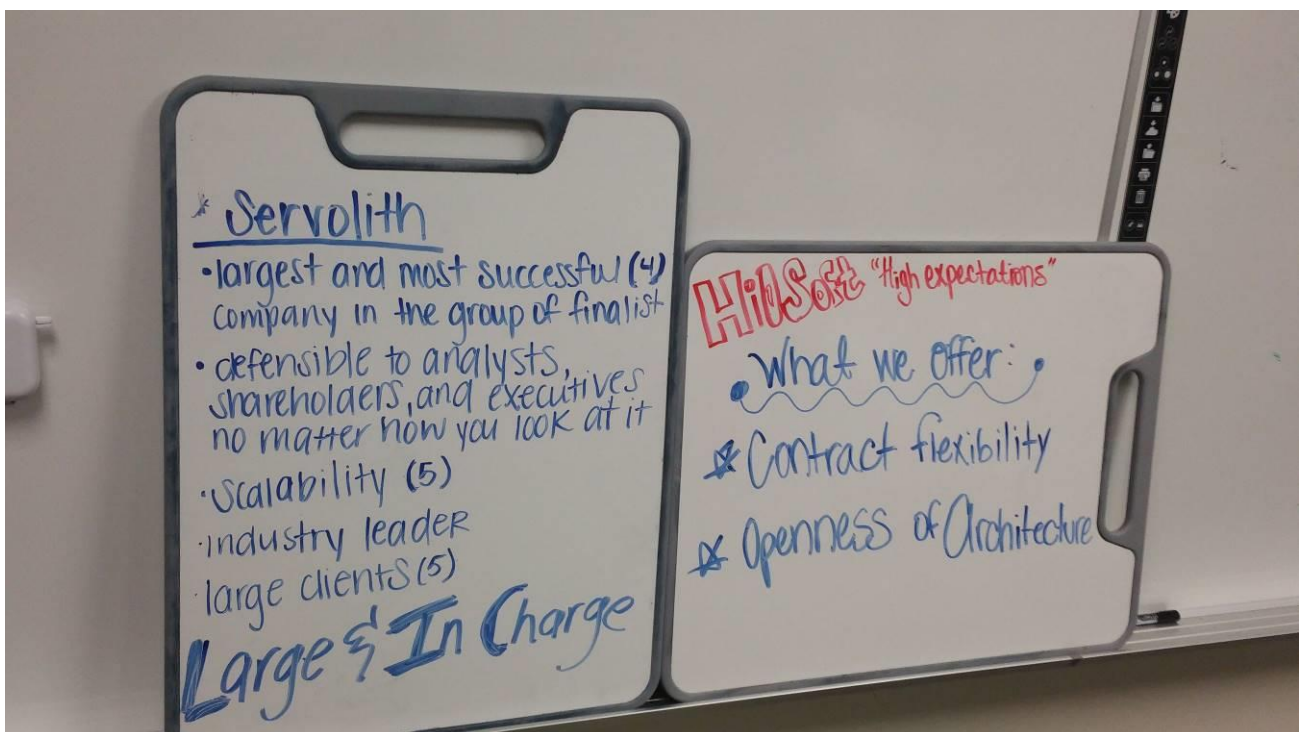 Servolith
• largest and most successful (4)
company in the group of finalist
• defensible to analysts,
shareholders, and executives
no matter how you look at it
• Scalability (5)
• industry leader
• large clients (5)
Large & In Charge
"High expectations"
What we offer:
Contract flexibility
Openness of Architecture